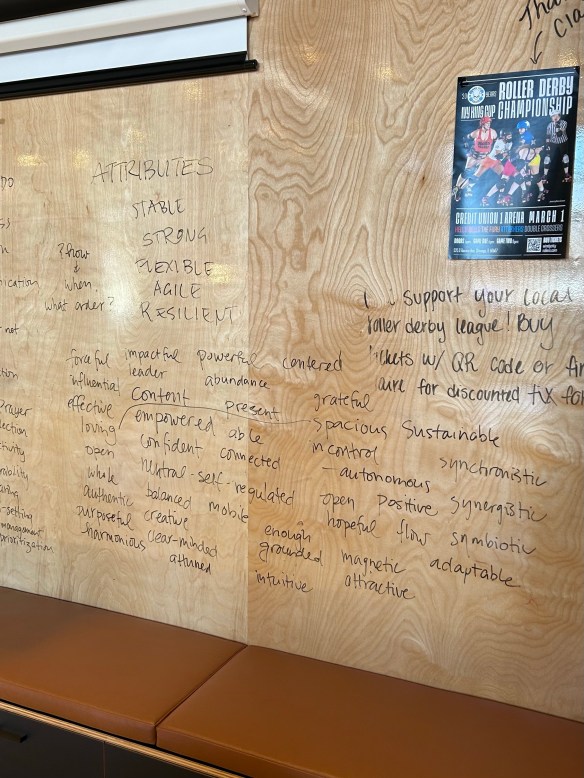 ATTRIBUTES
STABLE
STRONG
FLEXIBLE
AGILE
RESILIENT
? how
&
when.
what order?
forceful impactful powerful centered
influential leader abundance
effective content present grateful
loving empowered able spacious sustainable
open confident connected in control synchronistic
whole neutral-self-regulated - autonomous
authentic balanced mobile open positive synergistic
purposeful creative enough hopeful flow smbiotic
harmonious clear-minded grounded magnetic adaptable
attuned intuitive attractive
DO
not
Prayer
-setting
management
prioritization
support your local
roller derby league! Buy
tickets w/ QR code or
for discounted tix
ROLLER DERBY
IVY KING CUP CHAMPIONSHIP
CREDIT UNION 1 ARENA MARCH 1
THE FURY
DOUBLE CROSSERS